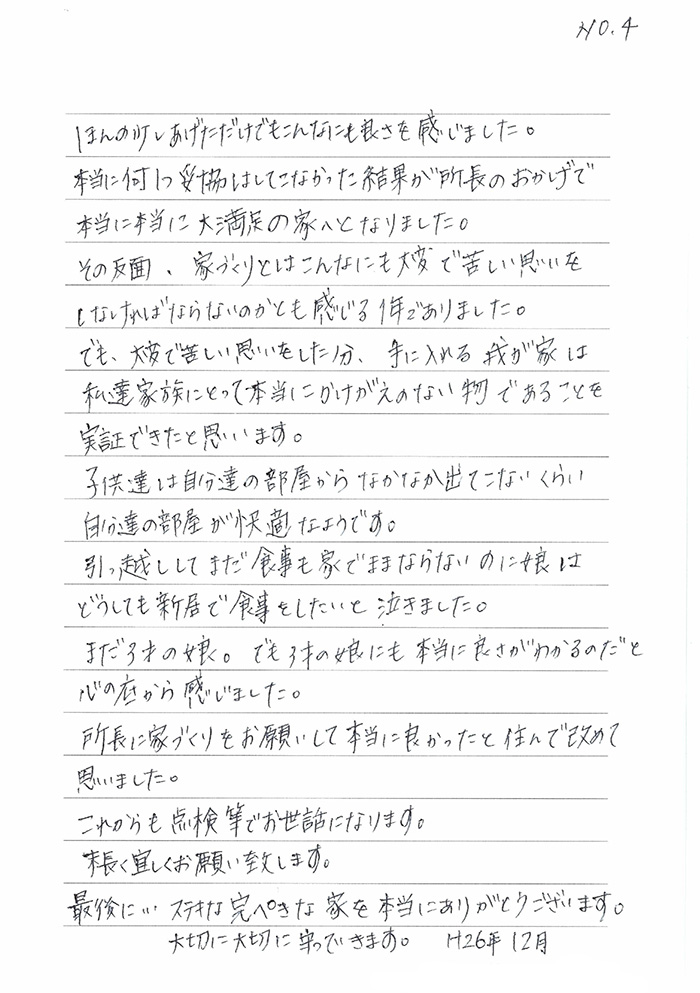 NO.4
ほんの少しあげただけでもこんなにも良さを感じました。
本当に何1つ妥協はしてこなかった結果が所長のおかげで
本当に本当に大満足の家へとなりました。
その反面、家づくりとはこんなにも大変で苦しい思いを
しなければならないのかとも感じる1年でありました。
でも、大変で苦しい思いをした分、手に入れる我が家は
私達家族にとって本当にかけがえのない物であることを
実証できたと思います。
子供達は自分達の部屋からなかなか出てこないくらい
自分達の部屋が快適なようです。
引っ越ししてまだ食事も家でままならないのに娘は
どうしても新居で食事をしたいと泣きました。
まだ3才の娘。でも3才の娘にも本当に良さがわかるのだと
心の底から感じました。
所長に家づくりをお願いして本当に良かったと住んで改めて
思いました。
これからも点検等でお世話になります。
末長く宜しくお願い致します。
最後に…ステキな完ぺきな家を本当にありがとうございます。
大切に大切に守っていきます。 H26年12月